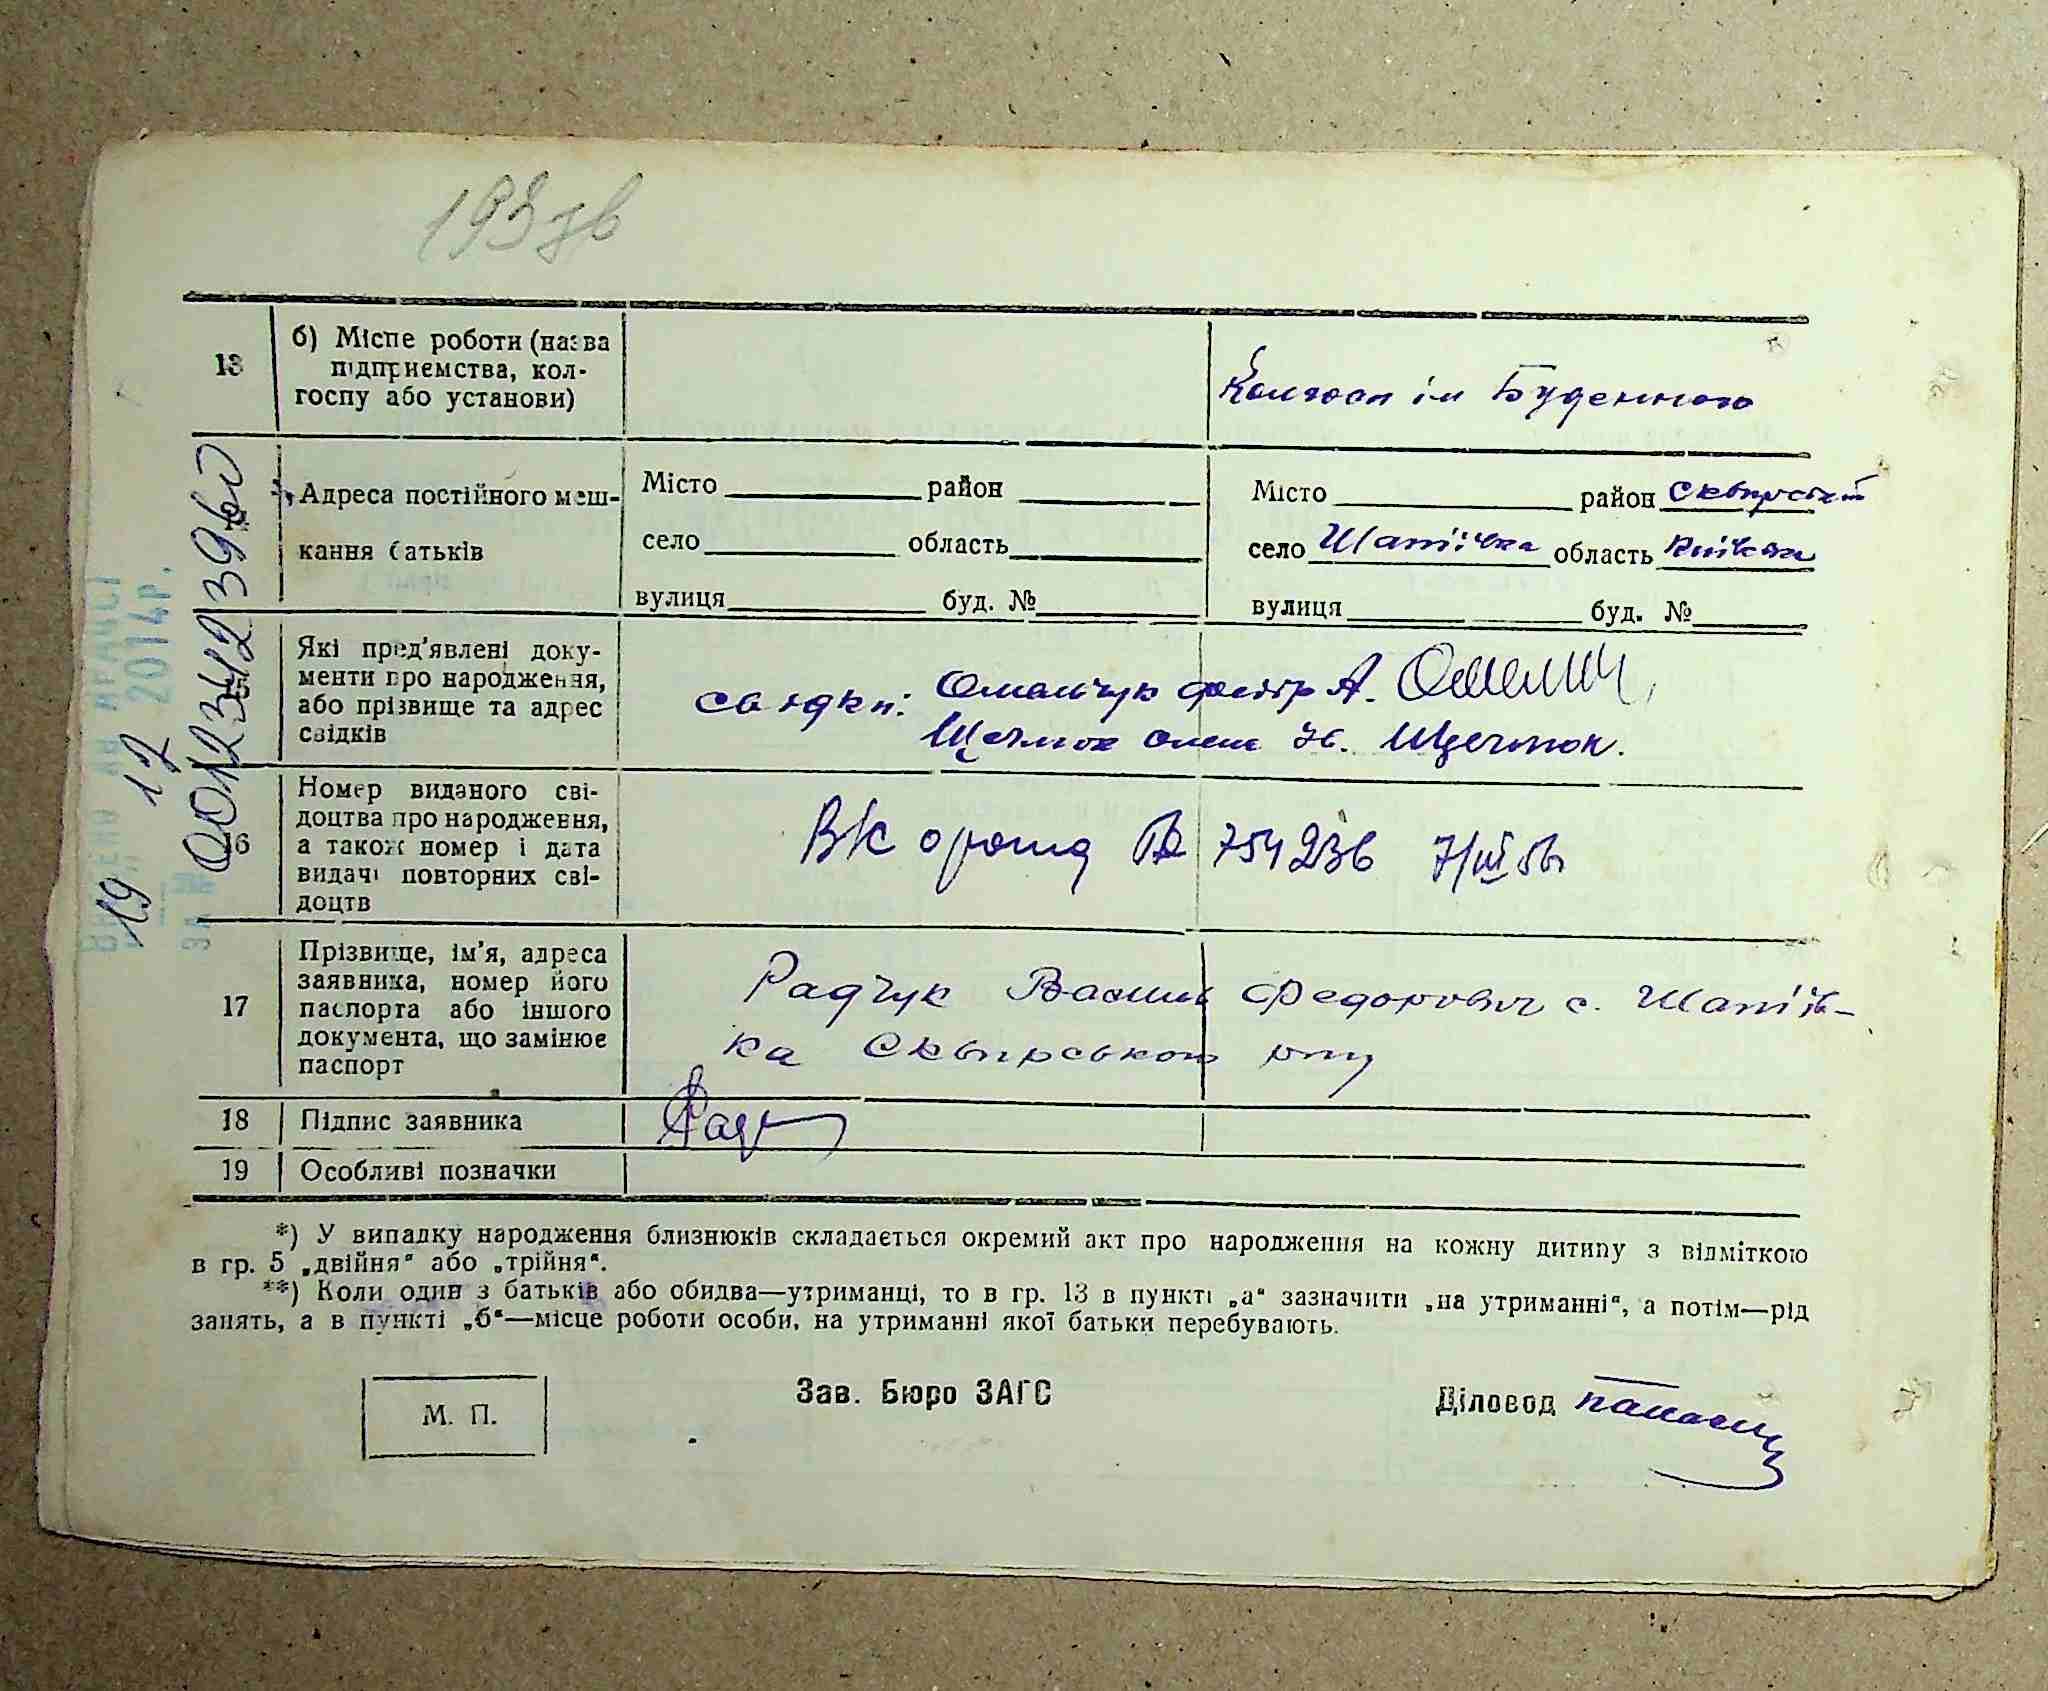 193
13
б) Місце роботи (назва
підприємства, кол-
госпу або установи)
Колгосп ім Буденного
Адреса постійного меш-
кання батьків
Місто район
село область
вулиця буд. №
Місто район Сквирський
село Шапіївка область Київська
вулиця буд. №
Які пред'явлені доку-
менти про народження,
або прізвище та адрес
свідків
свідки: А.
Номер виданого сві-
доцтва про народження,
а також номер і дата
видачі повторних сві-
доцтв
754236
17
Прізвище, ім'я, адреса
заявника, номер його
паспорта або іншого
документа, що замінює
паспорт
Радчук Василь Федорович с. Шапіїв-
ка Сквирського р-ну
18
Підпис заявника
19
Особливі позначки
*) У випадку народження близнюків складається окремий акт про народження на кожну дитину з відміткою
в гр. 5 „двійня“ або „трійня“.
**) Коли один з батьків або обидва—утриманці, то в гр. 13 в пункті „а“ зазначити „на утриманні“, а потім—рід
занять, а в пункті „б“—місце роботи особи, на утриманні якої батьки перебувають.
М. П.
Зав. Бюро ЗАГС
Діловод
19 12 2014р.
за №
00123412396